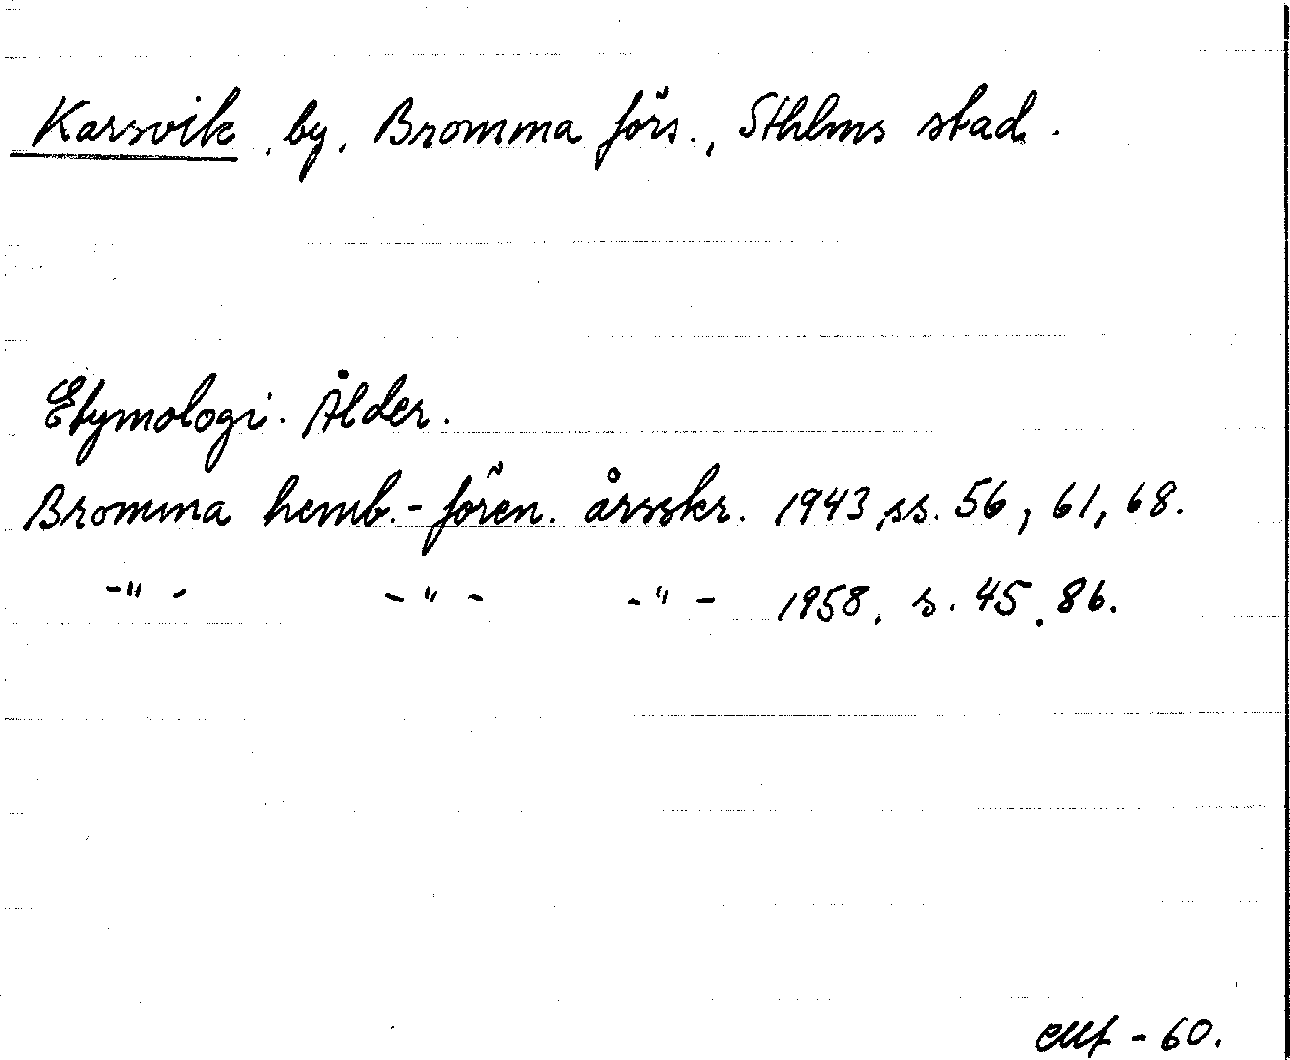 Karsvik, by, Bromma förs., Sthlms stad.
Etymologi. Ålder.
Bromma hemb.-fören. årsskr. 1943 ss. 56, 61, 68.
-"- -"- -"- 1958, s. 45, 86.
-60.